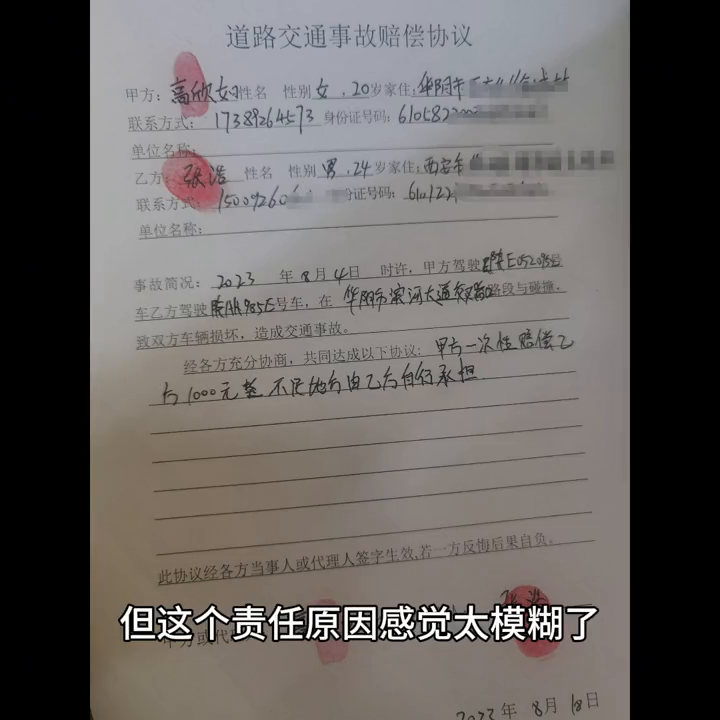 道路交通事故赔偿协议
甲方：高欣如姓名 性别女，20岁家住：华阴市
联系方式：17389264573身份证号码：610582200
单位名称：
乙方：张浩 姓名 性别男，24岁家住：西安市
联系方式：15009260 份证号码：610122
单位名称：
事故简况：2023 年8月4日 时许，甲方驾驶陕E05209号
车乙方驾驶 985E号车，在 华阴市滨河大道 路段与碰撞。
致双方车辆损坏，造成交通事故。
经各方充分协商，共同达成以下协议：甲方一次性赔偿乙
方1000元整 不足地方由乙方自行承担
此协议经各方当事人或代理人签字生效,若一方反悔后果自负。
张浩
甲方或代
但这个责任原因感觉太模糊了
2023年 8月18日